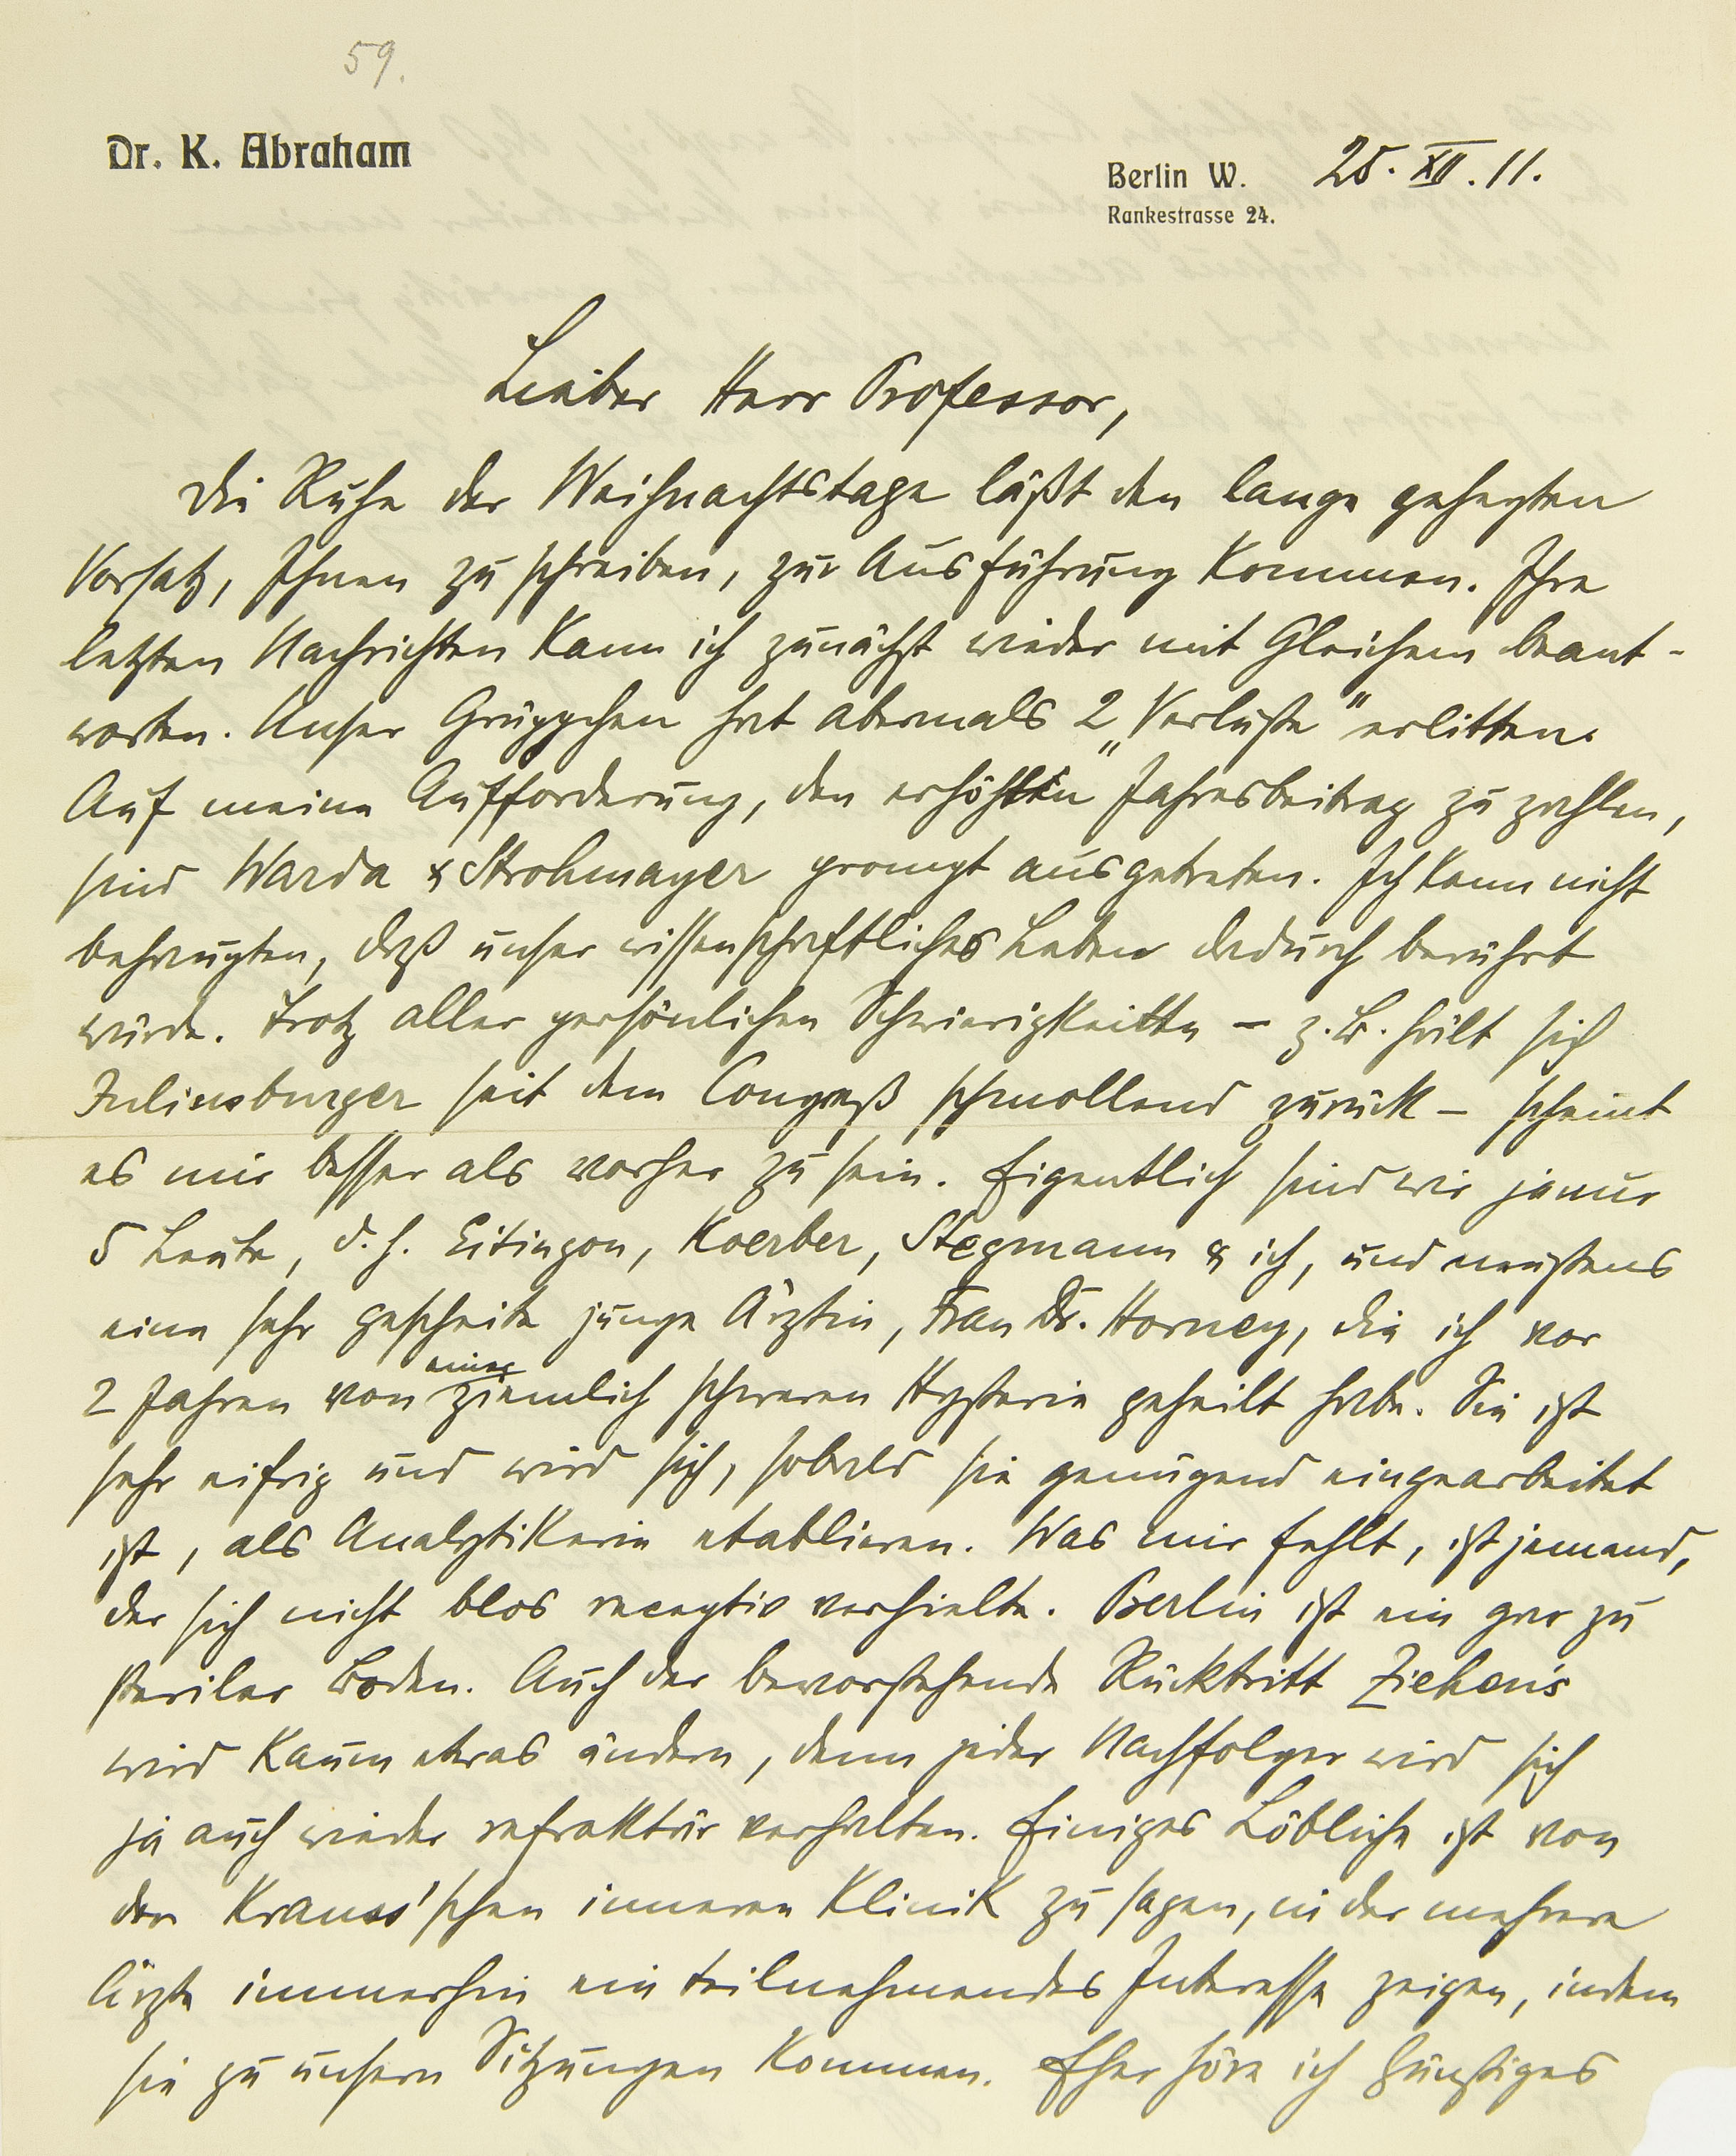 59.
Dr. K. Abraham
Berlin W. 25. XII. 11.
Rankestrasse 24.
Lieber Herr Professor,
Die Ruhe der Weihnachtstage läßt den lange gehegten
Vorsatz, Ihnen zu schreiben, zur Ausführung kommen. Ihre
letzten Nachrichten kann ich zunächst wieder mit Gleichem beant-
worten. Unser Grüppchen hat abermals 2 „Verluste“ erlitten.
Auf meine Aufforderung, den erhöhten Jahresbeitrag zu zahlen,
sind Warda & Strohmayer prompt ausgetreten. Ich kann nicht
behaupten, daß unser wissenschaftliches Leben dadurch berührt
würde. Trotz aller persönlichen Schwierigkeiten – z. B. hält sich
Juliusburger seit dem Congreß schmollend zurück – scheint
es mir besser als vorher zu sein. Eigentlich sind wir ja nur
5 Leute, d. h. Eitingon, Koerber, Stegmann & ich, und neustens
eine sehr gescheite junge Ärztin, Frau Dr. Horney, die ich vor
2 Jahren von einer ziemlich schweren Hysterie geheilt habe. Sie ist
sehr eifrig und wird sich, sobald sie genügend eingearbeitet
ist, als Analytikerin etablieren. Was mir fehlt, ist jemand,
der sich nicht blos receptiv verhielte. Berlin ist ein gar zu
steriler Boden. Auch der bevorstehende Rücktritt Ziehen's
wird kaum etwas ändern, denn jeder Nachfolger wird sich
ja auch wieder refraktär verhalten. Einiges Löbliche ist von
der Krauss'schen inneren Klinik zu sagen, in der mehrere
Ärzte immerhin ein teilnehmendes Interesse zeigen, indem
sie zu unsern Sitzungen kommen. Eher höre ich Günstiges